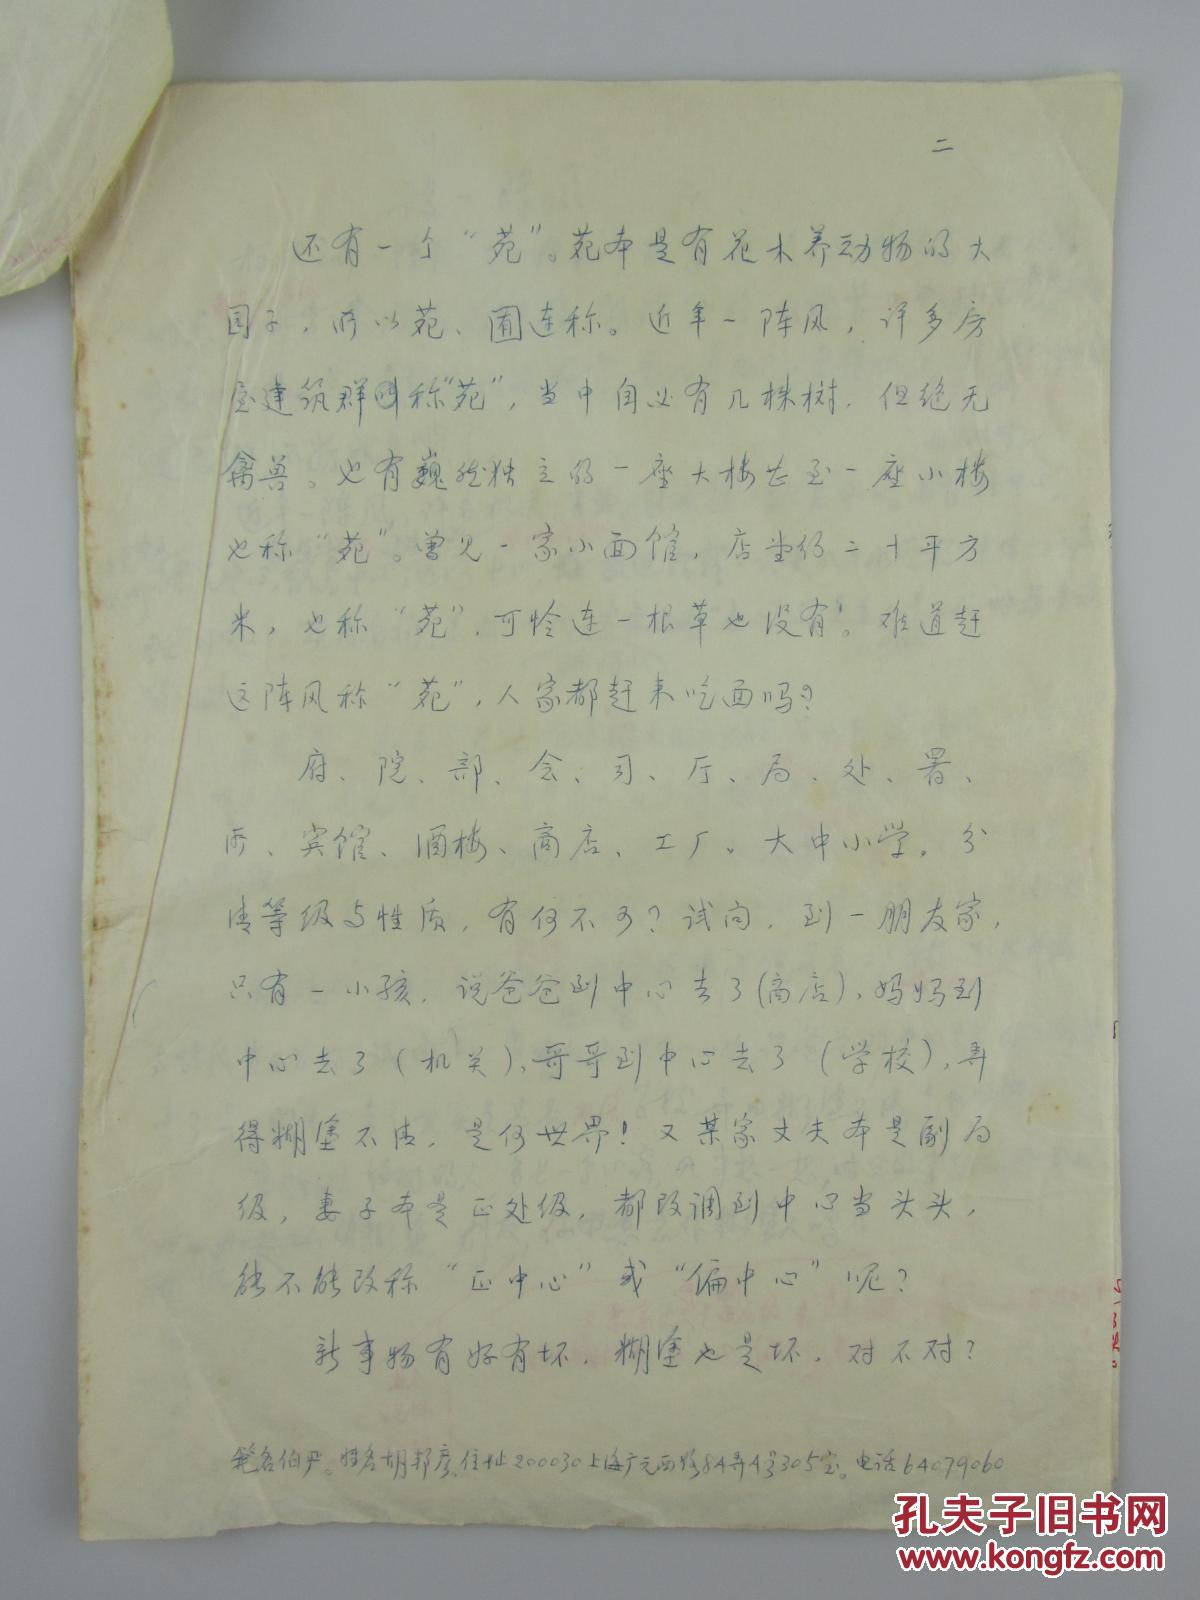 二
还有一个“苑”。苑本是有花木养动物的大
园子，所以苑、囿连称。近年一阵风，许多房
屋建筑群叫称“苑”，当中自必有几株树，但绝无
禽兽。也有巍然独立的一座大楼甚至一座小楼
也称“苑”。曾见一家小面馆，店堂仅二十平方
米，也称“苑”，可怜连一根草也没有！难道赶
这阵风称“苑”，人家都赶来吃面吗？
府、院、部、会、司、厅、局、处、署、
所、宾馆、酒楼、商店、工厂。大中小学，分
清等级与性质，有何不可？试问，到一朋友家，
只有一小孩，说爸爸到中心去了（商店），妈妈到
中心去了（机关），哥哥到中心去了（学校），弄
得糊塗不清，是何世界！又某家丈夫本是副局
级，妻子本是正处级，都改调到中心当头头，
能不能改称“正中心”或“偏中心”呢？
新事物有好有坏，糊塗也是坏，对不对？
笔名伯严。姓名胡邦彦。住址200030上海广元西路84弄4号305室。电话64079060
孔夫子旧书网
www.kongfz.com